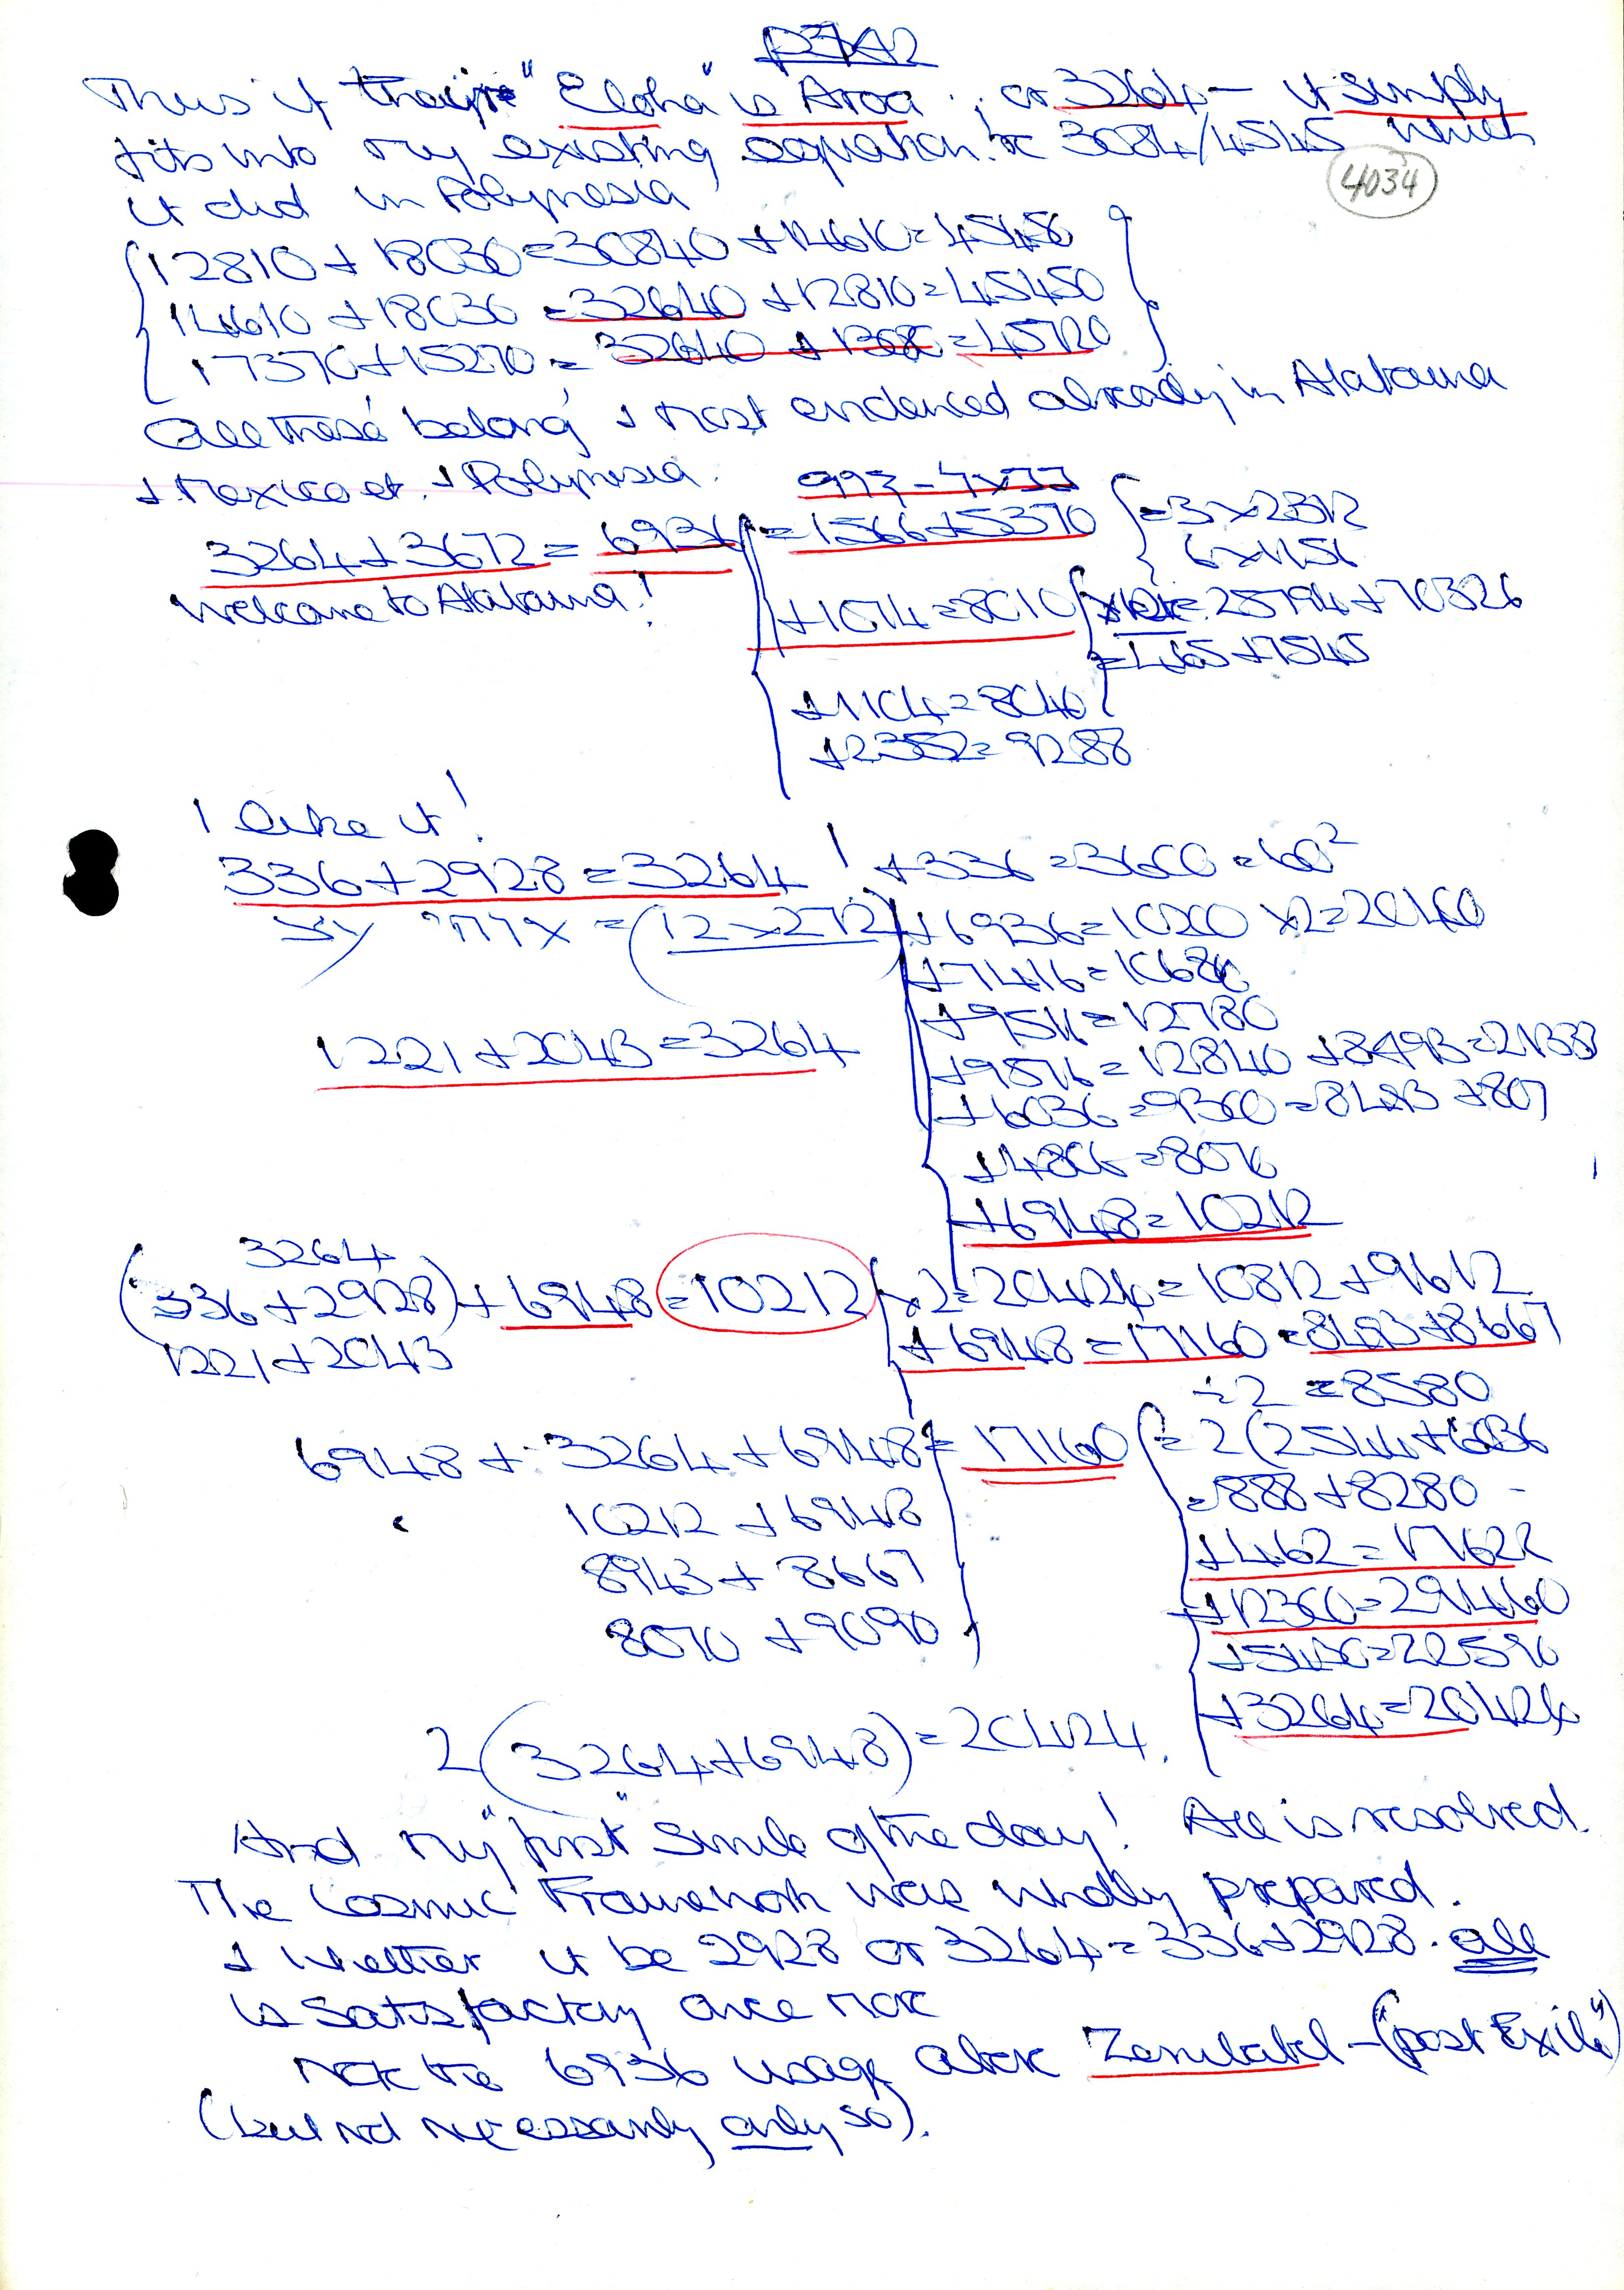 Thus if their "Eloha" is Aroa ; or 3264 – it simply
fits into my existing equation. ie 3084/4545 which
it did in Polynesia
4034
12810 + 18030 = 30840 + 14610 = 45450
14610 + 18030 = 32640 + 12810 = 45450
17370 + 15270 = 32640 + 13080 = 45720
All these belong & most evidenced already in Atakama
& Mexico et. & Polynesia.
3264 + 3672 = 6936 = 1566 + 5370 = 3 x 2312
6 x 1156
Welcome to Atakama!
+ 1074 = 8010 = 25794 + 70326
= 465 + 7545
+ 1104 = 8040
+ 2352 = 9288
I like it!
336 + 2928 = 3264 ! + 336 = 3600 = 60²
= (12 x 272) + 6936 = 10200 x 2 = 20400
+ 7416 = 10680
+ 9516 = 12780
1221 + 2043 = 3264
+ 9576 = 12840 + 8493 = 21333
+ 6036 = 9300 = 8493 + 807
+ 4806 = 8070
+ 6948 = 10212
3264
(336 + 2928) + 6948 = 10212 x 2 = 20424 = 10812 + 9612
1221 + 2043
+ 6948 = 17160 = 8493 + 8667
÷ 2 = 8580
6948 + 3264 + 6948 = 17160 = 2(2544 + 6036
= 8880 + 8280
10212 + 6948
+ 462 = 17622
8943 + 8667
+ 12300 = 29460
8070 + 9090
+ 5430 = 22590
+ 3264 = 20424
2(3264 + 6948) = 20424.
And my "first" smile of the day! All is resolved.
The Cosmic Framework was wholly prepared.
& whether it be 2928 or 3264 = 336 + 2928. all
is satisfactory once more
Note the 6936 usage above Zerubabel – ("post Exile")
(but not necessarily only so).